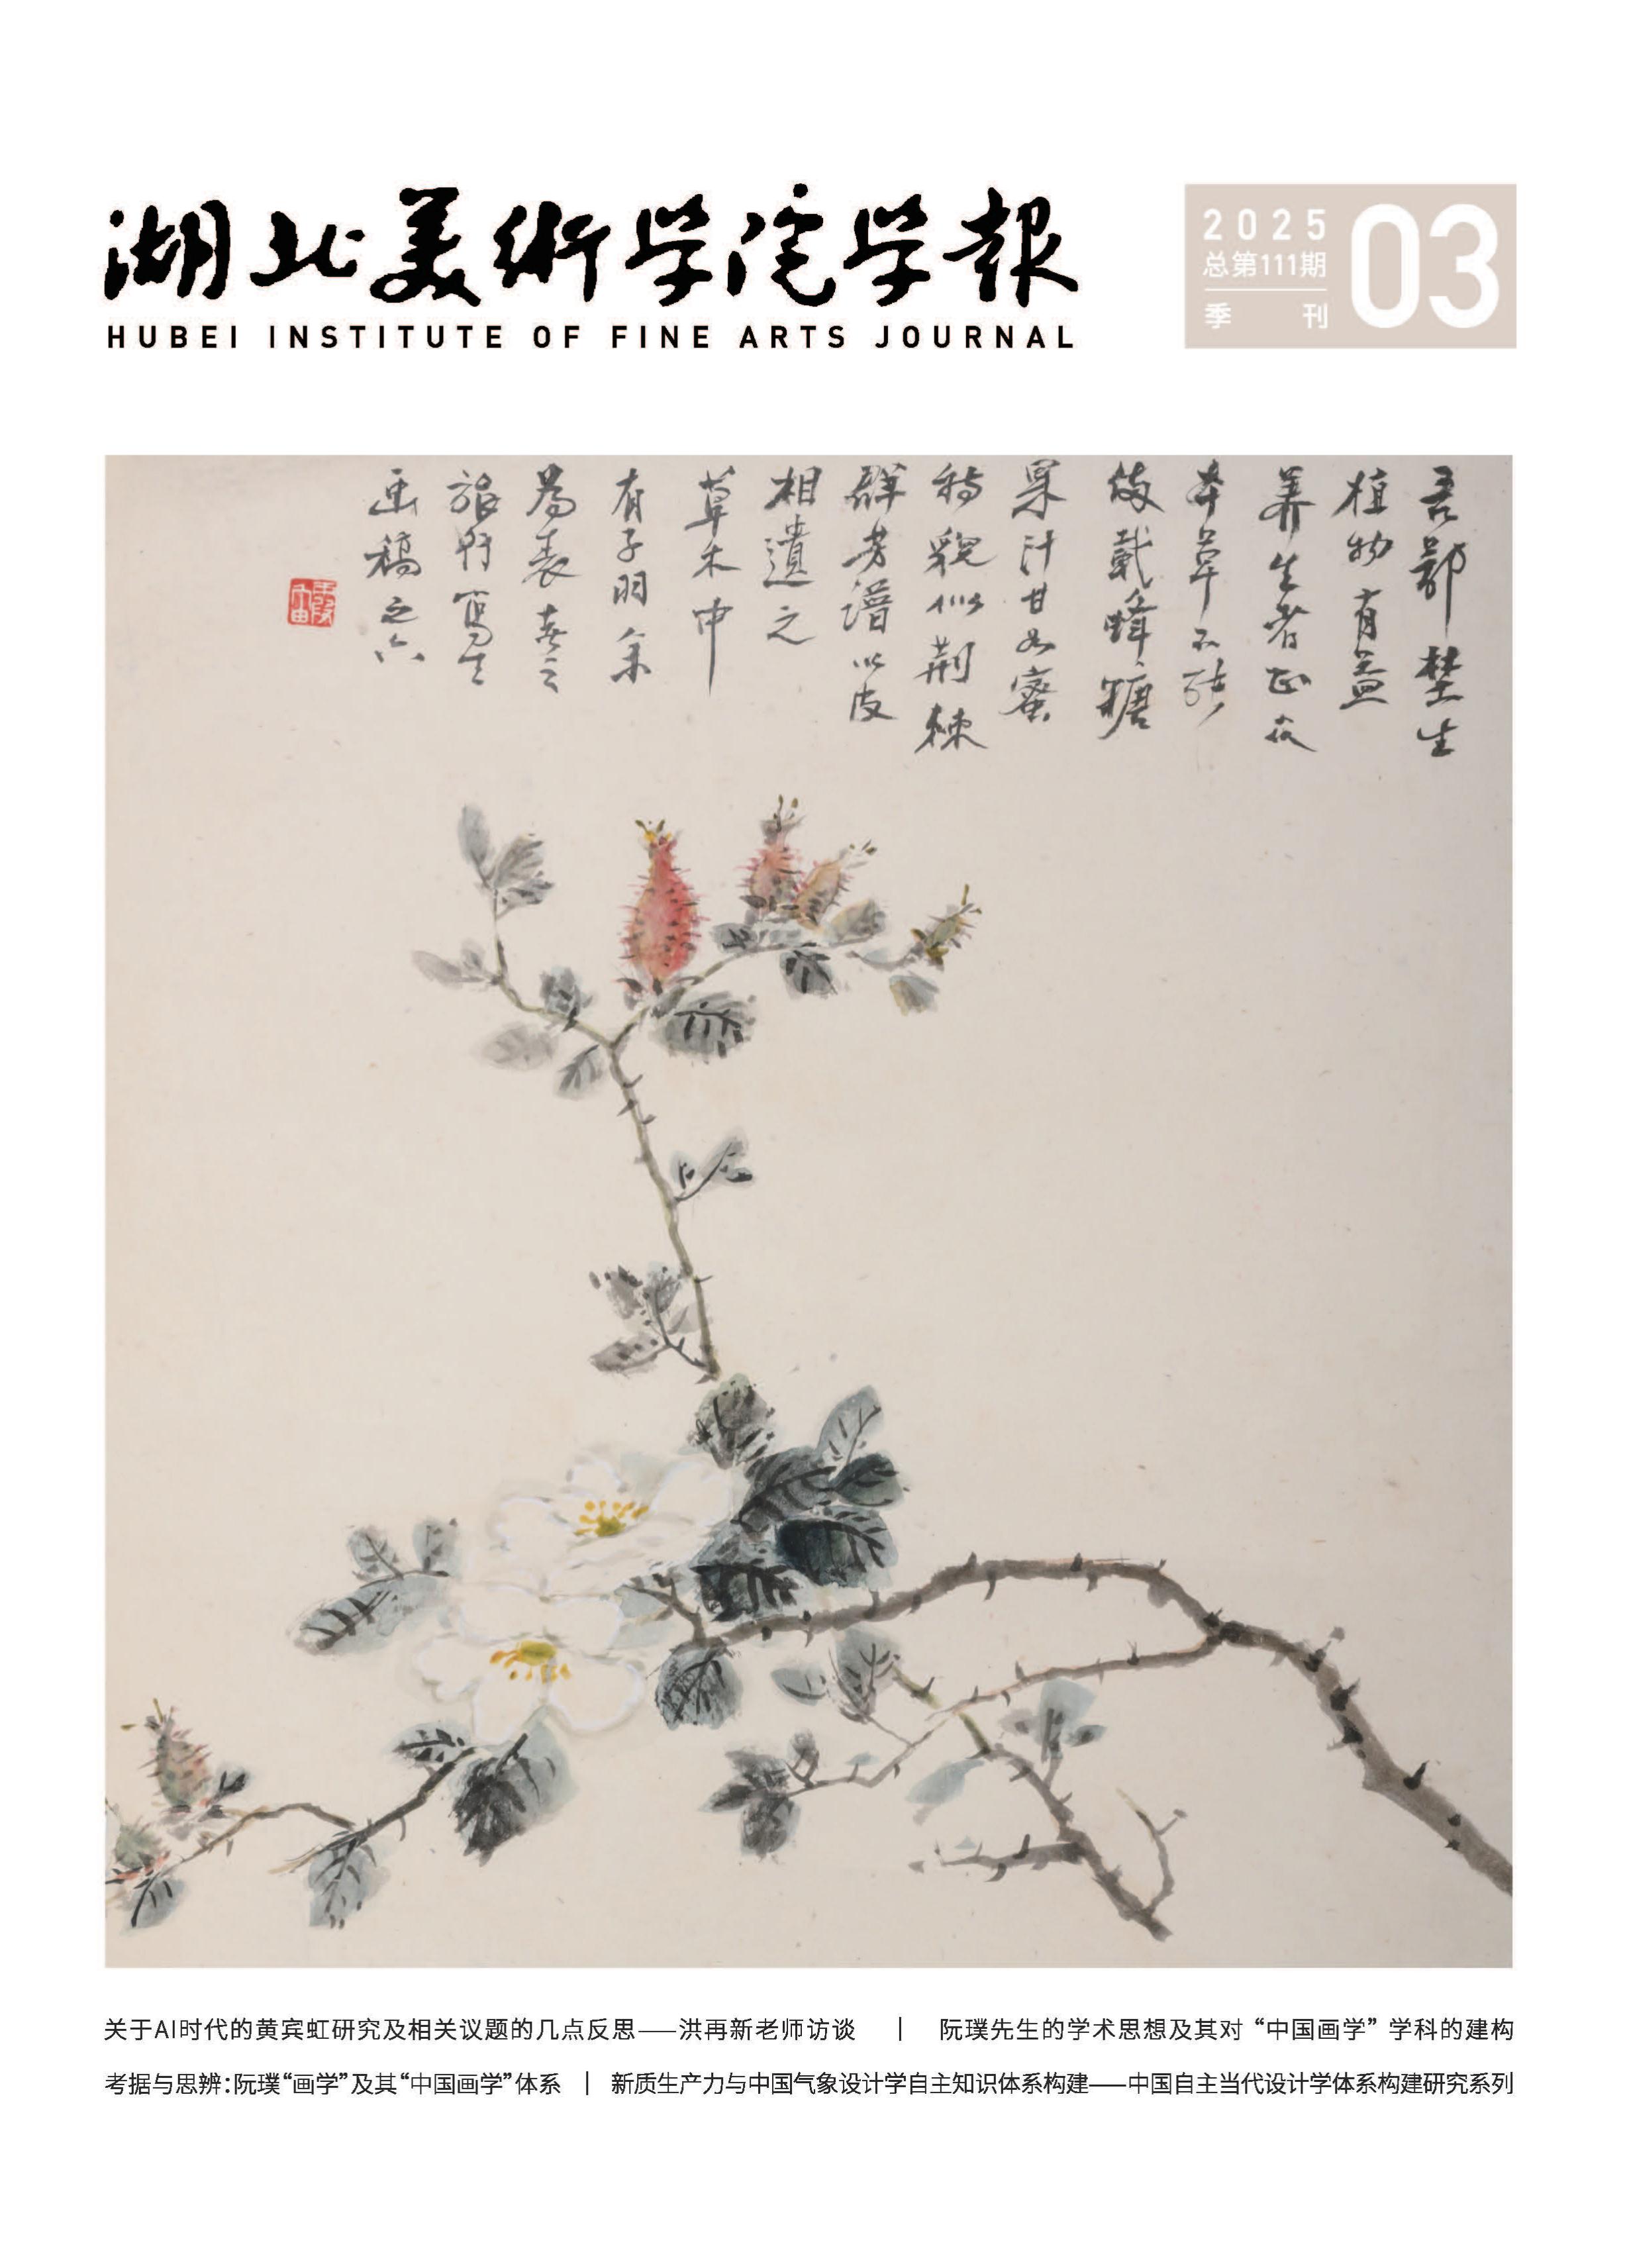 湖北美術学院学報
HUBEI INSTITUTE OF FINE ARTS JOURNAL
2025
总第111期
季 刊
03
吾埜生
植物有益
养生者正众
本草不能
備載蜂糖
果汁甘如蜜
貌似荆棘
群芳譜以皮
相遺之
草木中
有子羽余
為表之
旅行寫生
画稿之六
关于AI时代的黄宾虹研究及相关议题的几点反思——洪再新老师访谈 | 阮璞先生的学术思想及其对“中国画学”学科的建构
考据与思辨:阮璞“画学”及其“中国画学”体系 | 新质生产力与中国气象设计学自主知识体系构建——中国自主当代设计学体系构建研究系列